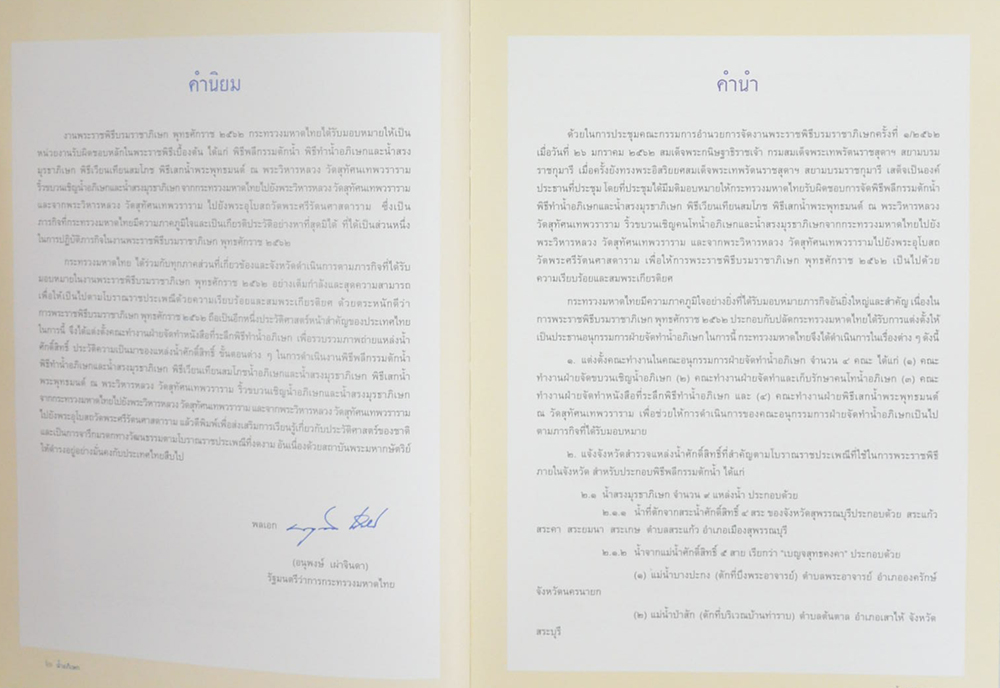 คำนิยม
งานพระราชพิธีบรมราชาภิเษก พุทธศักราช ๒๕๖๒ กระทรวงมหาดไทยได้รับมอบหมายให้เป็น
หน่วยงานรับผิดชอบหลักในพระราชพิธีเบื้องต้น ได้แก่ พิธีพลีกรรมตักน้ำ พิธีทำน้ำอภิเษกและน้ำสรง
มุรธาภิเษก พิธีเวียนเทียนสมโภช พิธีเสกน้ำพระพุทธมนต์ ณ พระวิหารหลวง วัดสุทัศนเทพวราราม
ริ้วขบวนเชิญน้ำอภิเษกและน้ำสรงมุรธาภิเษก จากกระทรวงมหาดไทยไปยังพระวิหารหลวง วัดสุทัศนเทพวราราม
และจากพระวิหารหลวง วัดสุทัศนเทพวราราม ไปยังพระอุโบสถวัดพระศรีรัตนศาสดาราม ซึ่งเป็น
ภารกิจที่กระทรวงมหาดไทยมีความภาคภูมิใจและเป็นเกียรติประวัติอย่างหาที่สุดมิได้ ที่ได้เป็นส่วนหนึ่ง
ในการปฏิบัติภารกิจในงานพระราชพิธีบรมราชาภิเษก พุทธศักราช ๒๕๖๒
กระทรวงมหาดไทย ได้ร่วมกับทุกภาคส่วนที่เกี่ยวข้องและจังหวัดดำเนินการตามภารกิจที่ได้รับ
มอบหมายในงานพระราชพิธีบรมราชาภิเษก พุทธศักราช ๒๕๖๒ อย่างเต็มกำลังและสุดความสามารถ
เพื่อให้เป็นไปตามโบราณราชประเพณีด้วยความเรียบร้อยและสมพระเกียรติยศ ด้วยตระหนักดีว่า
การพระราชพิธีบรมราชาภิเษก พุทธศักราช ๒๕๖๒ ถือเป็นอีกหนึ่งประวัติศาสตร์หน้าสำคัญของประเทศไทย
ในการนี้ จึงได้แต่งตั้งคณะทำงานฝ่ายจัดทำหนังสือที่ระลึกพิธีทำน้ำอภิเษก เพื่อรวบรวมภาพถ่ายแหล่งน้ำ
ศักดิ์สิทธิ์ ประวัติความเป็นมาของแหล่งน้ำศักดิ์สิทธิ์ ขั้นตอนต่าง ๆ ในการดำเนินงานพิธีพลีกรรมตักน้ำ
พิธีทำน้ำอภิเษกและน้ำสรงมุรธาภิเษก พิธีเวียนเทียนสมโภชน้ำอภิเษกและน้ำสรงมุรธาภิเษก พิธีเสกน้ำ
พระพุทธมนต์ ณ พระวิหารหลวง วัดสุทัศนเทพวราราม ริ้วขบวนเชิญน้ำอภิเษกและน้ำสรงมุรธาภิเษก
จากกระทรวงมหาดไทยไปยังพระวิหารหลวง วัดสุทัศนเทพวราราม และจากพระวิหารหลวง วัดสุทัศนเทพวราราม
ไปยังพระอุโบสถวัดพระศรีรัตนศาสดาราม แล้วตีพิมพ์เพื่อส่งเสริมการเรียนรู้เกี่ยวกับประวัติศาสตร์ของชาติ
และเป็นการจารึกมรดกทางวัฒนธรรมตามโบราณราชประเพณีที่งดงาม อันเนื่องด้วยสถาบันพระมหากษัตริย์
ให้ดำรงอยู่อย่างมั่นคงกับประเทศไทยสืบไป
พลเอก
(อนุพงษ์ เผ่าจินดา)
รัฐมนตรีว่าการกระทรวงมหาดไทย
น้ำอภิเษก
คำนำ
ด้วยในการประชุมคณะกรรมการอำนวยการจัดงานพระราชพิธีบรมราชาภิเษกครั้งที่ ๑/๒๕๖๒
เมื่อวันที่ ๒๖ มกราคม ๒๕๖๒ สมเด็จพระกนิษฐาธิราชเจ้า กรมสมเด็จพระเทพรัตนราชสุดาฯ สยามบรม
ราชกุมารี เมื่อครั้งยังทรงพระอิสริยยศสมเด็จพระเทพรัตนราชสุดาฯ สยามบรมราชกุมารี เสด็จเป็นองค์
ประธานที่ประชุม โดยที่ประชุมได้มีมติมอบหมายให้กระทรวงมหาดไทยรับผิดชอบการจัดพิธีพลีกรรมตักน้ำ
พิธีทำน้ำอภิเษกและน้ำสรงมุรธาภิเษก พิธีเวียนเทียนสมโภช พิธีเสกน้ำพระพุทธมนต์ ณ พระวิหารหลวง
วัดสุทัศนเทพวราราม ริ้วขบวนเชิญคนโทน้ำอภิเษกและน้ำสรงมุรธาภิเษกจากกระทรวงมหาดไทยไปยัง
พระวิหารหลวง วัดสุทัศนเทพวราราม และจากพระวิหารหลวง วัดสุทัศนเทพวรารามไปยังพระอุโบสถ
วัดพระศรีรัตนศาสดาราม เพื่อให้การพระราชพิธีบรมราชาภิเษก พุทธศักราช ๒๕๖๒ เป็นไปด้วย
ความเรียบร้อยและสมพระเกียรติยศ
กระทรวงมหาดไทยมีความภาคภูมิใจอย่างยิ่งที่ได้รับมอบหมายภารกิจอันยิ่งใหญ่และสำคัญ เนื่องใน
การพระราชพิธีบรมราชาภิเษก พุทธศักราช ๒๕๖๒ ประกอบกับปลัดกระทรวงมหาดไทยได้รับการแต่งตั้งให้
เป็นประธานอนุกรรมการฝ่ายจัดทำน้ำอภิเษก ในการนี้ กระทรวงมหาดไทยจึงได้ดำเนินการในเรื่องต่าง ๆ ดังนี้
๑. แต่งตั้งคณะทำงานในคณะอนุกรรมการฝ่ายจัดทำน้ำอภิเษก จำนวน ๔ คณะ ได้แก่ (๑) คณะ
ทำงานฝ่ายจัดขบวนเชิญน้ำอภิเษก (๒) คณะทำงานฝ่ายจัดทำและเก็บรักษาคนโทน้ำอภิเษก (๓) คณะ
ทำงานฝ่ายจัดทำหนังสือที่ระลึกพิธีทำน้ำอภิเษก และ (๔) คณะทำงานฝ่ายพิธีเสกน้ำพระพุทธมนต์
ณ วัดสุทัศนเทพวราราม เพื่อช่วยให้การดำเนินการของคณะอนุกรรมการฝ่ายจัดทำน้ำอภิเษกเป็นไป
ตามภารกิจที่ได้รับมอบหมาย
๒. แจ้งจังหวัดสำรวจแหล่งน้ำศักดิ์สิทธิ์ที่สำคัญตามโบราณราชประเพณีที่ใช้ในการพระราชพิธี
ภายในจังหวัด สำหรับประกอบพิธีพลีกรรมตักน้ำ ได้แก่
๒.๑ น้ำสรงมุรธาภิเษก จำนวน ๙ แหล่งน้ำ ประกอบด้วย
๒.๑.๑ น้ำที่ตักจากสระน้ำศักดิ์สิทธิ์ ๔ สระ ของจังหวัดสุพรรณบุรีประกอบด้วย สระแก้ว
สระคา สระยมนา สระเกษ ตำบลสระแก้ว อำเภอเมืองสุพรรณบุรี
๒.๑.๒ น้ำจากแม่น้ำศักดิ์สิทธิ์ ๕ สาย เรียกว่า "เบญจสุทธคงคา" ประกอบด้วย
(๑) แม่น้ำบางปะกง (ตักที่บึงพระอาจารย์) ตำบลพระอาจารย์ อำเภอองครักษ์
จังหวัดนครนายก
(๒) แม่น้ำป่าสัก (ตักที่บริเวณบ้านท่าราบ) ตำบลต้นตาล อำเภอเสาไห้ จังหวัด
สระบุรี